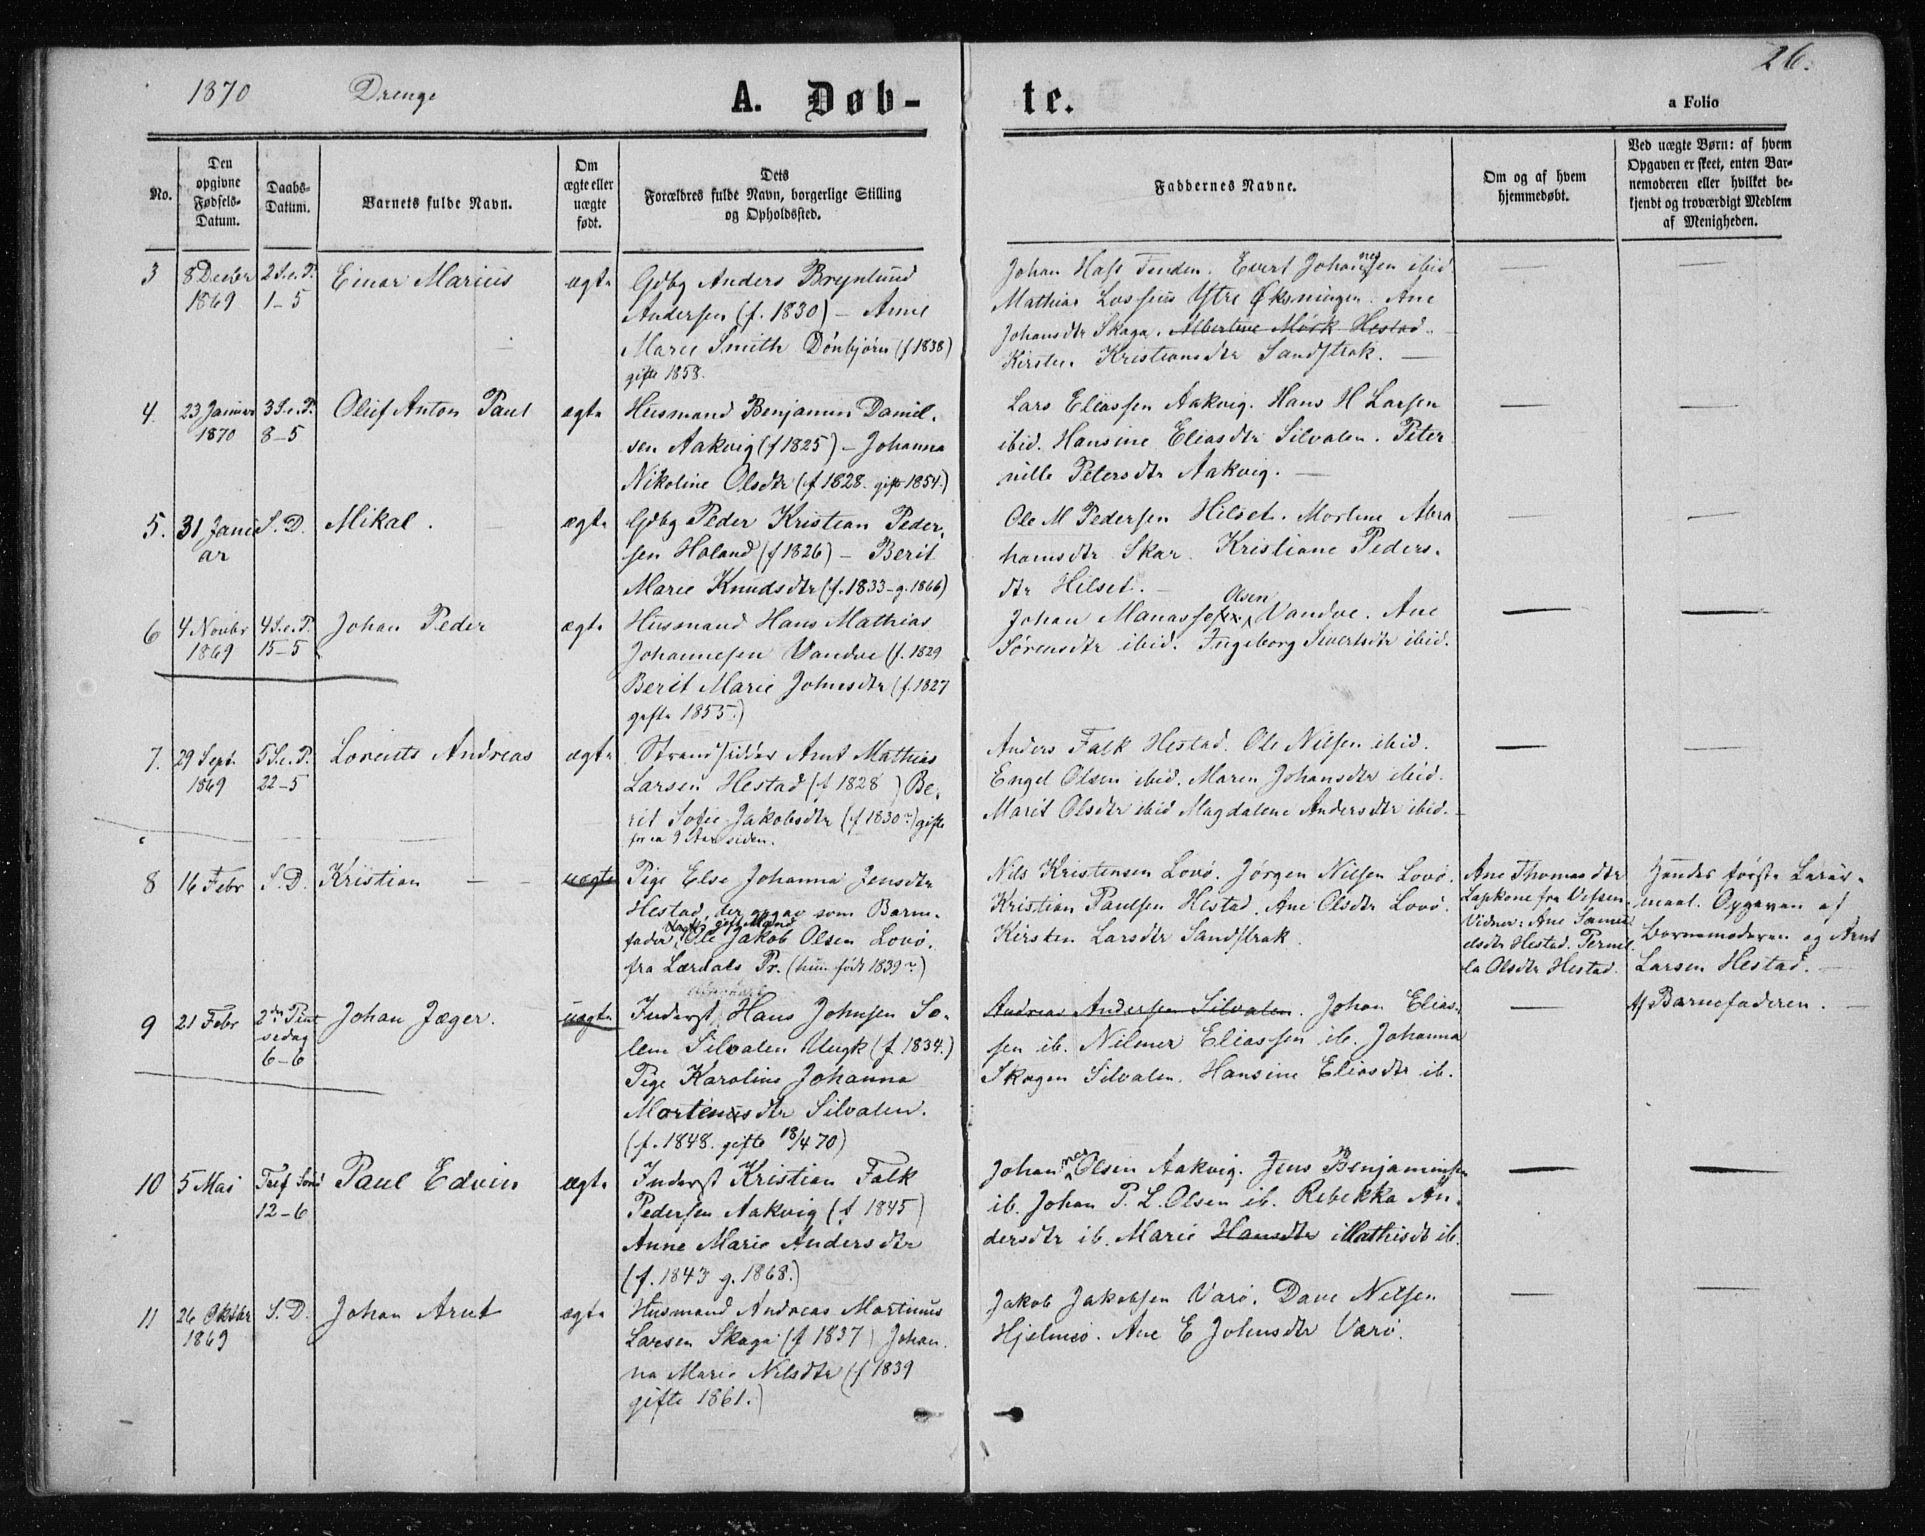 1870 Drenge A. Døb- te. 26.
a Folio
No.
Den opgivne Fødsels-Datum.
Daabs-Datum.
Barnets fulde Navn.
Om ægte eller uægte født.
Dets Forældres fulde Navn, borgerlige Stilling og Opholdssted.
Faddernes Navne.
Om og af hvem hjemmedøbt.
Ved uægte Børn: af hvem Opgaven er skeet, enten Barnemoderen eller hvilket bekjendt og troværdigt Medlem af Menigheden.
3 8 Decbr 1869 2 S. e. P. 1-5 Einar Marius ægte
Gdbg Anders Brynlund
Andersen (f. 1830) - Anne
Marie Smith Dønbjørn (f 1838)
gifte 1858.
Johan Hass Tenden. Evert Johannesen ibid
Mathias Lossius Ytre Øksningen. Ane
Johansdtr Skaga. Albertine Mørk Hestad.
Kirsten Kristiansdtr Sandstrak. —
4. 23 Januar 1870 3 S. e. P. 8-5 Oluf Anton Paul ægte
Husmand Benjamin Daniel-
sen Aakvig (f 1825) - Johanna
Nikoline Olsdtr (f 1828. gifte 1854.)
Lars Eliassen Aakvig. Hans H Larsen
ibid. Hansine Eliasdtr Silvalen. Peter
nille Petersdtr Aakvig. —
5. 31 Janu ar S. D. Mikal. ægte
Gdbg Peder Kristian Peder-
sen Holand (f 1826) - Berit
Marie Knudsdtr (f. 1833 - g. 1866)
Ole M Pedersen Hilset. Mortine Abra
hamsdtr Skar. Kristiane Peders-
dtr Hilset. —
6 4 Novbr 1869 4 S. e. P. 15-5 Johan Peder ægte
Husmand Hans Mathias
Johannesen Vandve (f. 1829
Berit Marie Johnsdtr (f. 1827
gifte 1855.)
Johan Manasse Olsen Vandve. Ane
Sørensdtr ibid. Ingeborg Sivertsdtr ibid.
7. 29 Sept. 1869 5 S. e. P. 22-5 Lorents Andreas ægte
Strandsidder Arnt Mathias
Larsen Hestad (f 1828) Be-
rit Sofie Jakobsdtr (f 1830?) gifte
for ca 9 Aar siden.
Anders Falk Hestad. Ole Nilsen ibid.
Engel Olsen ibid. Maren Johansdtr ibid.
Marit Olsdtr ibid Magdalene Andersdtr ibid.
8 16 Febr S. D. Kristian — — uægte
Pige Else Johanna Jensdtr
Hestad, der opgav som Barne-
fader, Ole Jakob Olsen Lovø.
fra Lærdals Pr. (hun født 1839?)
Nils Kristensen Lovø. Jørgen Nilsen Lovø.
Kristian Paulsen Hestad. Ane Olsdtr Lovø.
Kirsten Larsdtr Sandstrak.
Ane Thomasdtr
Lapkone fra Vefsen.
Vidner: Ane Samu
elsdtr Hestad. Pernil
la Olsdtr Hestad.
Hendes første Leier-
maal. Opgaven af
Barnemoderen og Arnt
Larsen Hestad. —
9 21 Febr 2den Pint sedag 6-6 Johan Jæger. uægte
Inderst Hans Johnsen So-
lem Silvalen Ungk (f. 1834.)
Pige Karoline Johanna
Mortensdtr Silvalen.
(f. 1848. gifte 18/4 70)
Andreas Andersen Silvalen. Johan Elias-
sen ib. Nilmer Eliassen ib. Johanna
Skogen Silvalen. Hansine Eliasdtr ib.
Af Barnefaderen. —
10 5 Mai Tref Sønd 12-6 Paul Edvin ægte
Inderst Kristian Falk
Pedersen Aakvig (f 1845)
Anne Marie Andersdtr
(f. 1843 g. 1868.)
Johannes Olsen Aakvig. Jens Benjaminsen
ib. Johan P. L. Olsen ib. Rebekka An-
dersdtr ib. Marie Hansdtr Mathisdt ib.
11 26 Oktbr 1869 S. D. Johan Arnt ægte
Husmand Andreas Martinus
Larsen Skaga (f 1837) Johan
na Marie Nilsdtr (f 1839
gifte 1861.)
Jakob Jakobsen Varø. Dane Nilsen
Hjelmsø. Ane E Johnsdtr Varø.